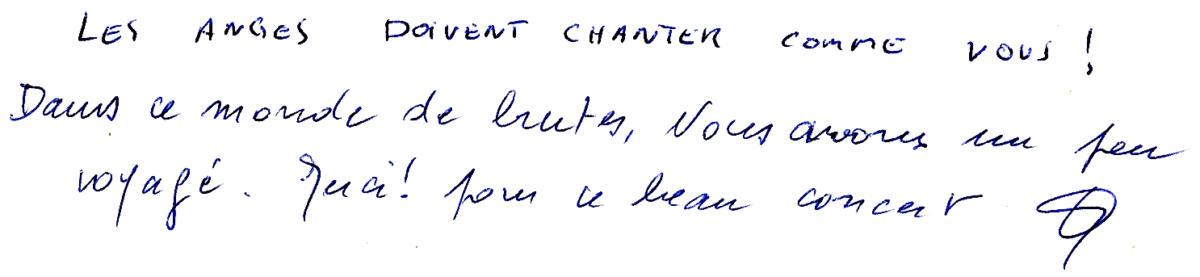 LES ANGES DOIVENT CHANTER COMME VOUS !
Dans ce monde de brutes, Nous avons un peu
voyagé. Merci ! pour ce beau concert